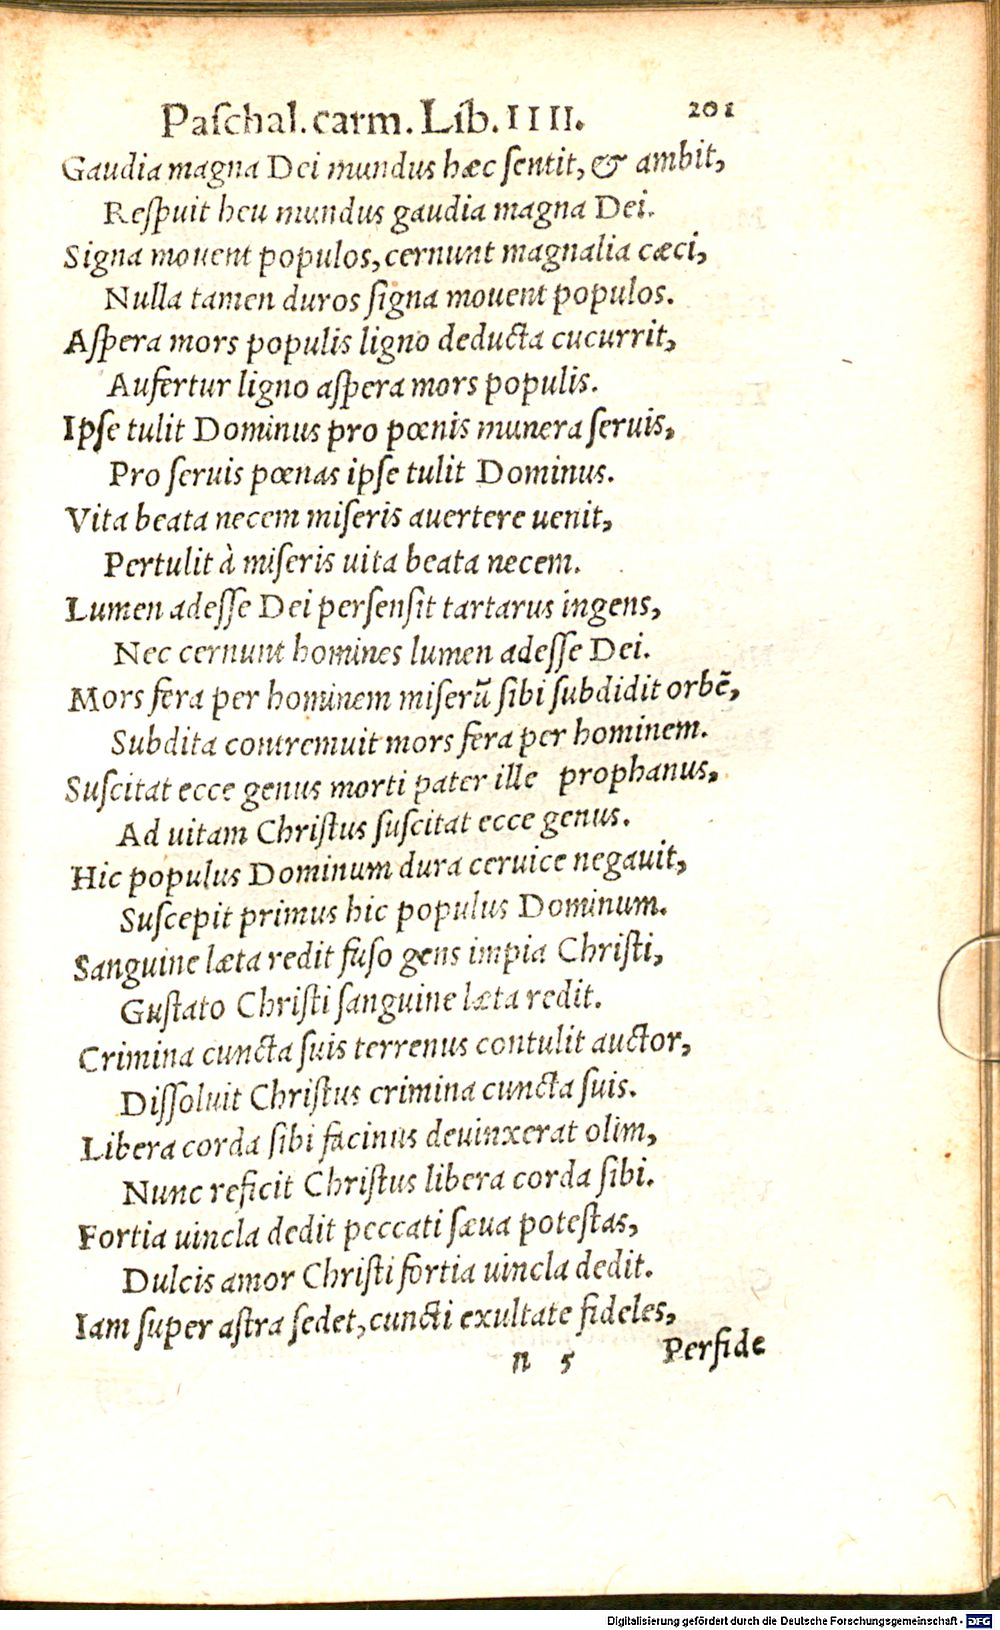 Paſchal. carm. Lib. IIII. 201
Gaudia magna Dei mundus hæc ſentit, & ambit,
Reſpuit heu mundus gaudia magna Dei.
Signa mouent populos, cernunt magnalia cæci,
Nulla tamen duros ſigna mouent populos.
Aſpera mors populis ligno deducta cucurrit,
Aufertur ligno aſpera mors populis.
Ipſe tulit Dominus pro pœnis munera ſeruis,
Pro ſeruis pœnas ipſe tulit Dominus.
Vita beata necem miſeris auertere uenit,
Pertulit à miſeris uita beata necem.
Lumen adeſſe Dei perſenſit tartarus ingens,
Nec cernunt homines lumen adeſſe Dei.
Mors fera per hominem miſerũ ſibi ſubdidit orbẽ,
Subdita contremuit mors fera per hominem.
Suſcitat ecce genus morti pater ille prophanus,
Ad uitam Chriſtus ſuſcitat ecce genus.
Hic populus Dominum dura ceruice negauit,
Suſcepit primus hic populus Dominum.
Sanguine læta redit fuſo gens impia Chriſti,
Guſtato Chriſti ſanguine læta redit.
Crimina cuncta ſuis terrenus contulit auctor,
Diſſoluit Chriſtus crimina cuncta ſuis.
Libera corda ſibi facinus deuinxerat olim,
Nunc reficit Chriſtus libera corda ſibi.
Fortia uincla dedit peccati ſæua poteſtas,
Dulcis amor Chriſti fortia uincla dedit.
Iam ſuper aſtra ſedet, cuncti exultate fideles,
n 5 Perfide
Digitalisierung gefördert durch die Deutsche Forschungsgemeinschaft - DFG